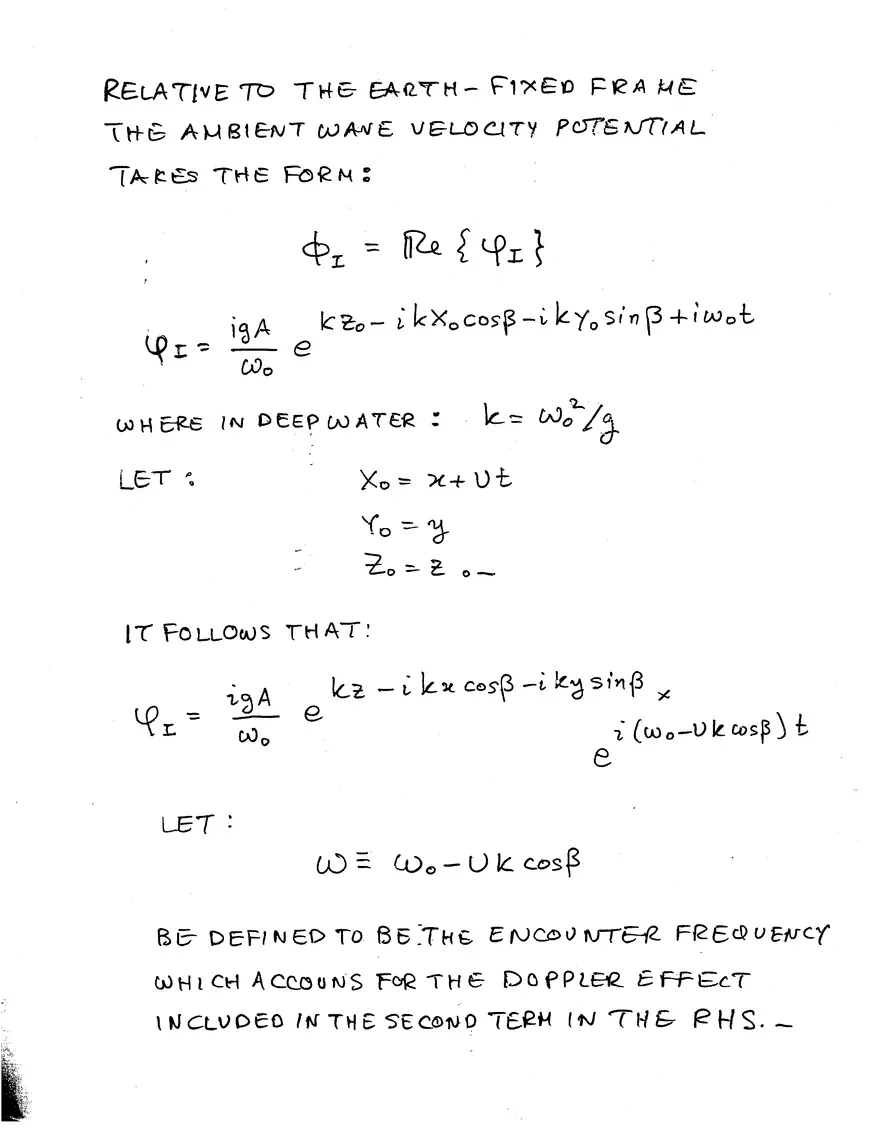 RELATIVE TO THE EARTH-FIXED FRAME
THE AMBIENT WAVE VELOCITY POTENTIAL
TAKES THE FORM:
ϕ_I = ℝe { φ_I }
φ_I = igA/ω₀ e^{kz₀ - ikX₀cosβ - ikY₀sinβ + iω₀t}
WHERE IN DEEP WATER : k = ω₀²/g
LET : X₀ = x + Ut
Y₀ = y
Z₀ = z .—
IT FOLLOWS THAT:
φ_I = igA/ω₀ e^{kz - ikx cosβ - iky sinβ} ×
e^{i(ω₀-Uk cosβ)t}
LET :
ω ≡ ω₀ - Uk cosβ
BE DEFINED TO BE THE ENCOUNTER FREQUENCY
WHICH ACCOUNS FOR THE DOPPLER EFFECT
INCLUDED IN THE SECOND TERM IN THE RHS. —